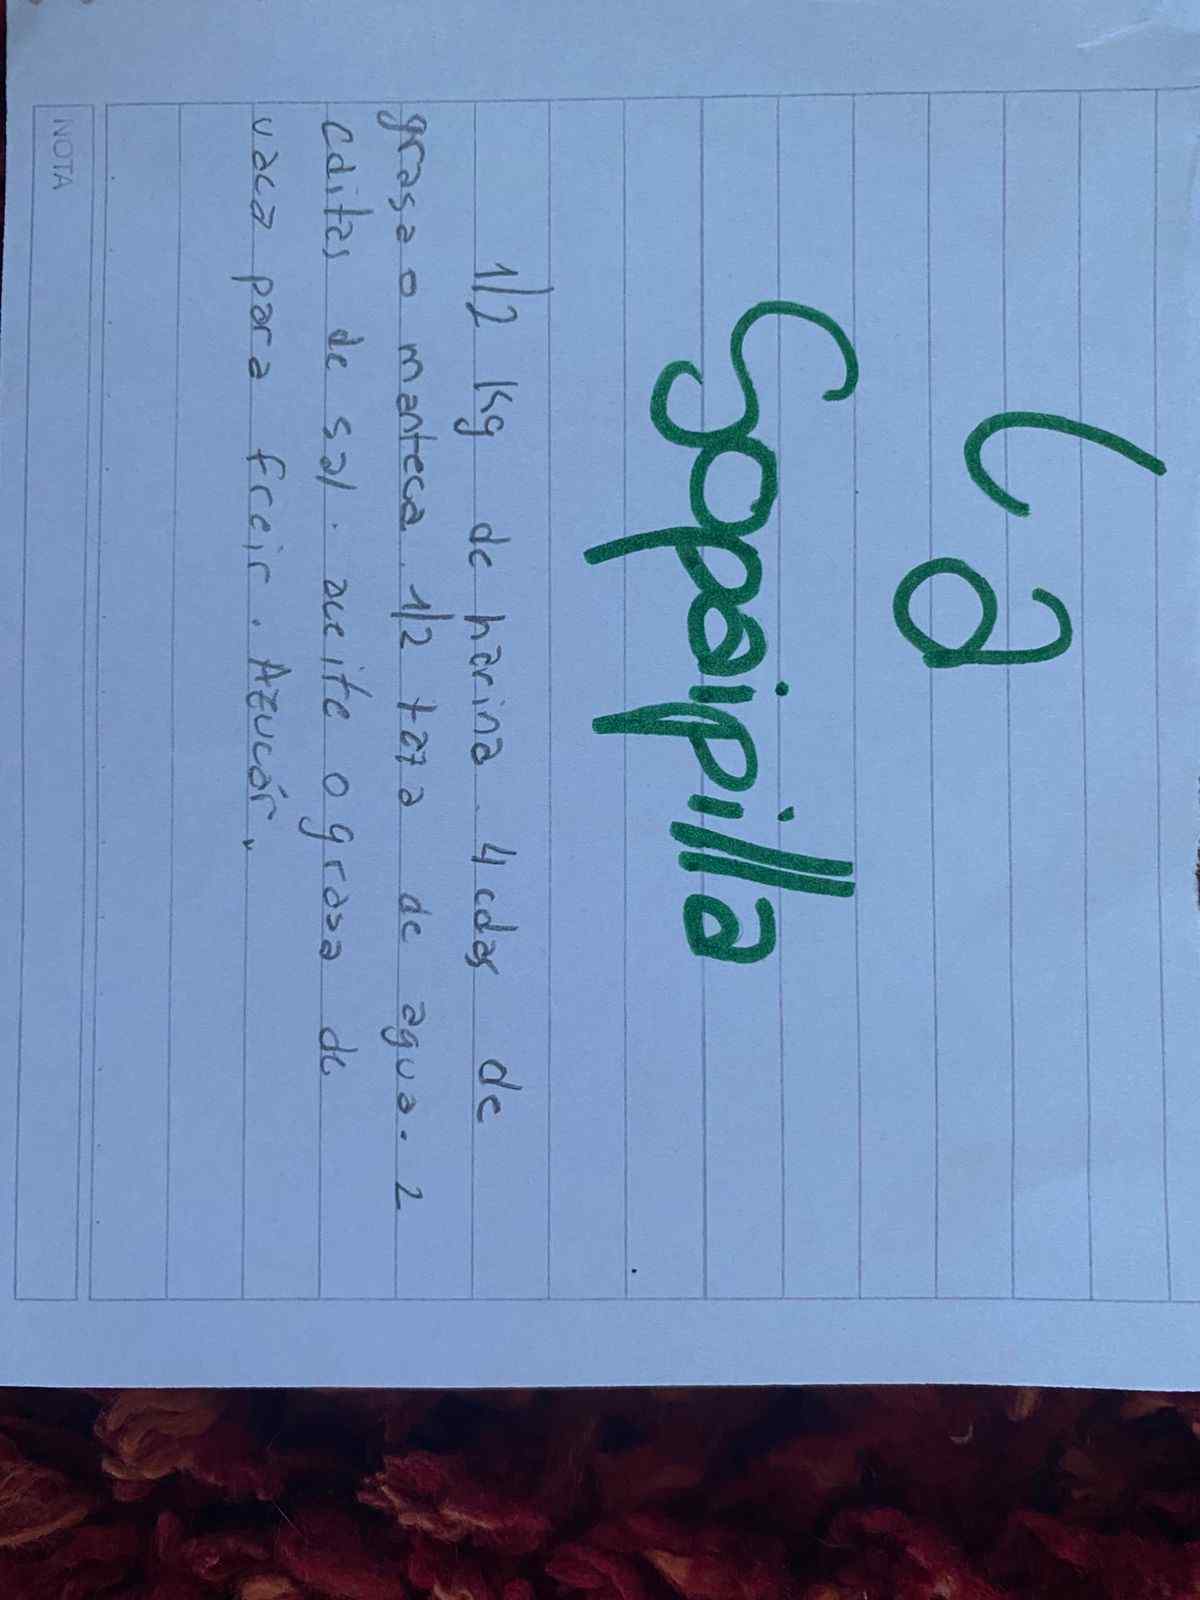 La
Sopaipilla
1/2 Kg de harina. 4 cdas de
grasa o manteca. 1/2 taza de agua. 2
cditas de sal. aceite o grasa de
vaca para freir. Azucár.
NOTA